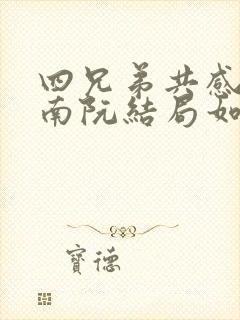 四兄弟共感
南阮結局如
寶德